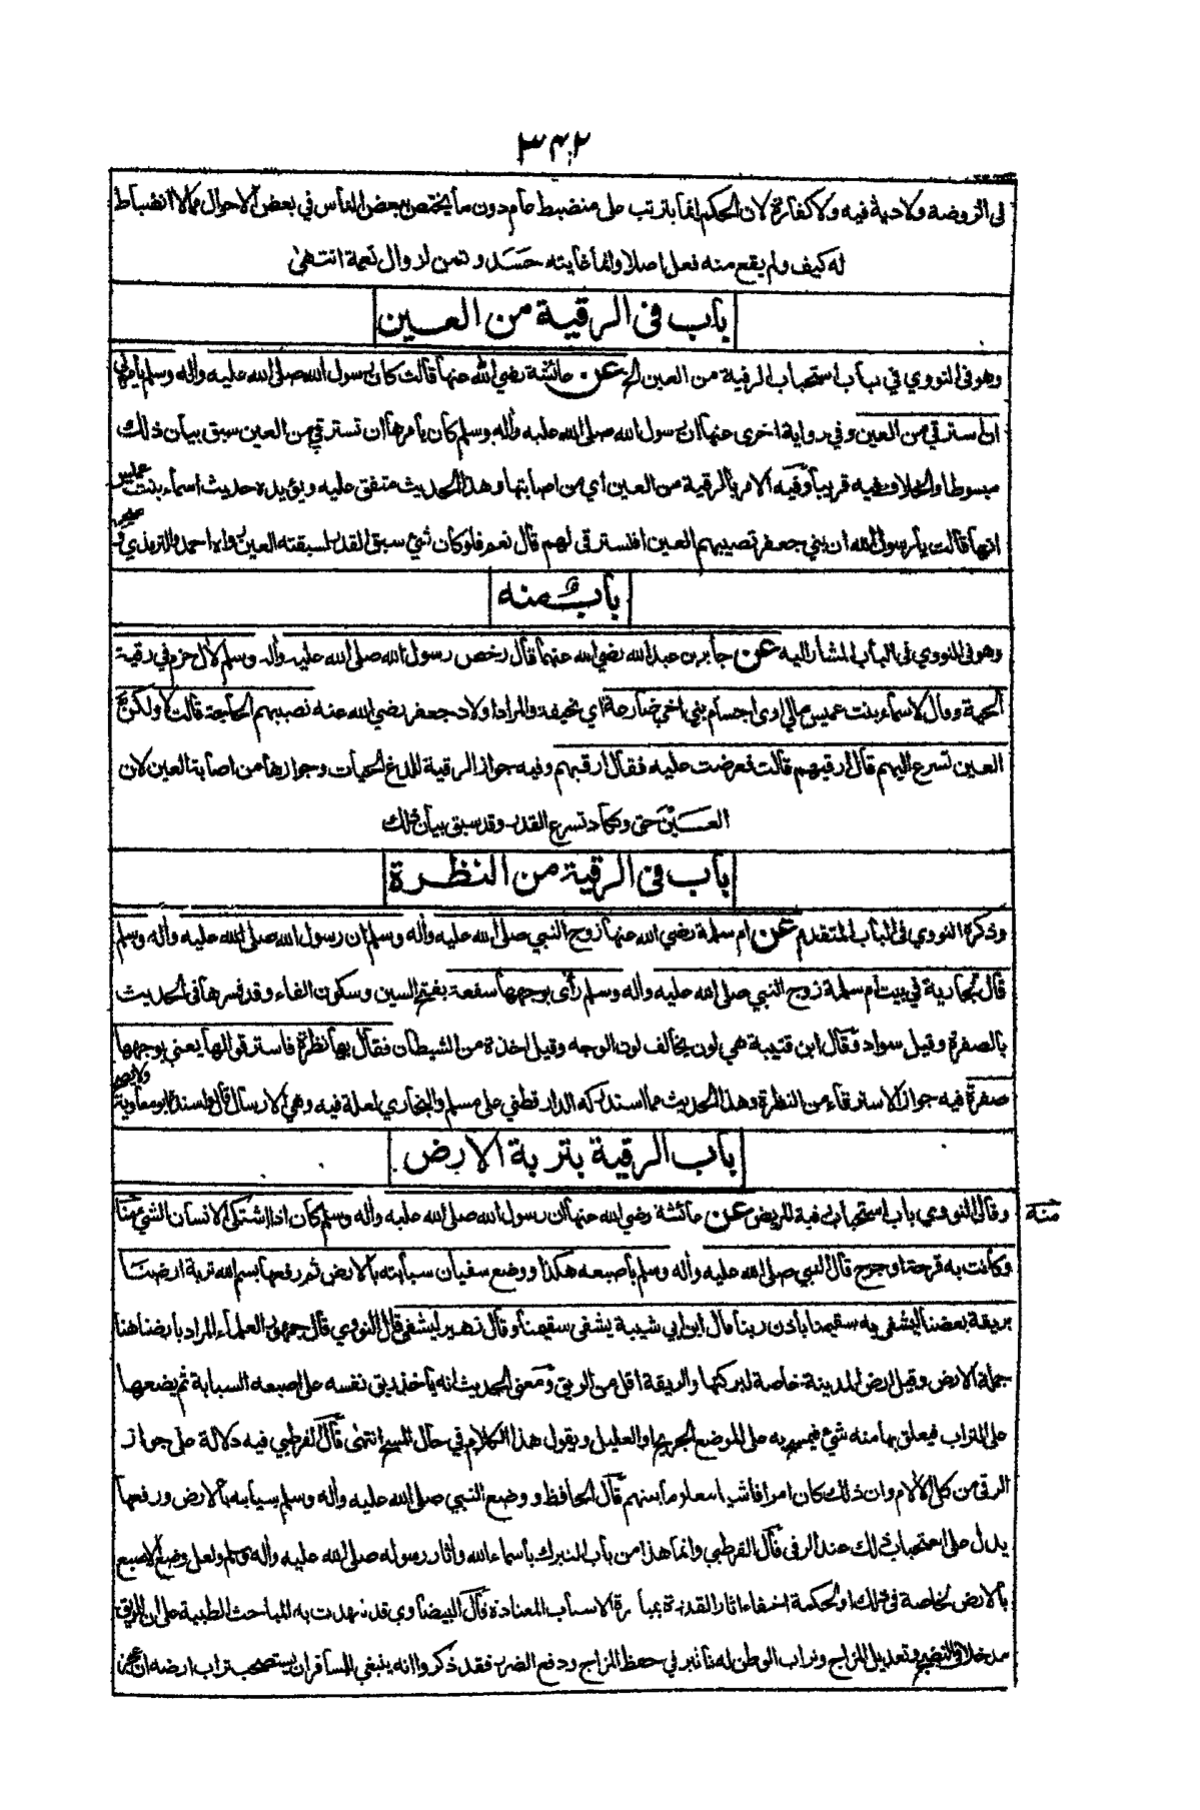 ٣٤٢
في الروضة ولا دية فيه ولا كفارة لان الحكم انما يترتب على منضبط عام دون ما يختص ببعض الناس في بعض الاحوال مما لا انضباط
له كيف ولم يقع منه فعل اصلا وانما غايته حسد وتمن لزوال نعمة انتهى
باب في الرقية من العين
وهو في النووي في باب استحباب الرقية من العين الخ عن عائشة رضي الله عنها قالت كان رسول الله صلى الله عليه وأله وسلم يأمرني
ان استرقي من العين وفي رواية اخرى عنها ان رسول الله صلى الله عليه وأله وسلم كان يأمرها ان تسترقي من العين سبق بيان ذلك
مبسوطا والخلاف فيه قريبا وفيه الامر بالرقية من العين أي من اصابتها وهذا الحديث متفق عليه ويؤيده حديث اسماء بنت عميس
انها قالت يا رسول الله ان بني جعفر تصيبهم العين افنسترقي لهم قال نعم فلو كان شئ سبق القدر لسبقته العين رواه احمد والترمذي
باب منه
وهو في النووي في الباب المشار اليه عن جابر بن عبد الله رضي الله عنهما قال رخص رسول الله صلى الله عليه وأله وسلم لأل حزم في رقية
الحية وقال لاسماء بنت عميس مالي ارى اجسام بني اخي ضارعة أي نحيفة والمراد اولاد جعفر رضي الله عنه تصيبهم الحاجة قالت لا ولكن
العين تسرع اليهم قال ارقيهم قالت فعرضت عليه فقال ارقيهم وفيه جواز الرقية للدغ الحيات وجوازها من اصابة العين لان
العين حق وكاد تسرع القدر وقد سبق بيان ذلك
باب في الرقية من النظرة
وذكره النووي في الباب المتقدم عن ام سلمة رضي الله عنها زوج النبي صلى الله عليه وأله وسلم ان رسول الله صلى الله عليه وأله وسلم
قال لجارية في بيت أم سلمة زوج النبي صلى الله عليه وأله وسلم رأى بوجهها سفعة بفتح السين وسكون الفاء وقد فسرها في الحديث
بالصفرة وقيل سواد وقال ابن قتيبة هي لون يخالف لون الوجه وقيل اخذة من الشيطان فقال بها نظرة فاسترقوا لها يعني بوجهها
صفرة فيه جواز الاسترقاء من النظرة وهذا الحديث مما استدركه الدارقطني على مسلم والبخاري لعلة فيه وهي الارسال قال واسنده ابو معاوية ولا يصح
باب الرقية بتربة الارض
وقال النووي باب استحباب رقية المريض عن عائشة رضي الله عنها أن رسول الله صلى الله عليه وأله وسلم كان اذا اشتكى الانسان الشئ منه
او كانت به قرحة او جرح قال النبي صلى الله عليه وأله وسلم بأصبعه هكذا ووضع سفيان سبابته بالارض ثم رفعها بسم الله تربة ارضنا
بريقة بعضنا ليشفى به سقيمنا بأذن ربنا قال ابن ابي شيبة يشفى سقيمنا وقال زهير ليشفى قال النووي قال جمهور العلماء المراد بارضنا هنا
جملة الارض وقيل ارض المدينة خاصة لبركتها والريقة اقل من الريق ومعنى الحديث انه يأخذ من ريق نفسه على اصبعه السبابة ثم يضعها
على التراب فيعلق بها منه شئ فيمسح به على الموضع الجريح او العليل ويقول هذا الكلام في حال المسح انتهى قال القرطبي فيه دلالة على جواز
الرقى من كل الألام وان ذلك كان امرا فاشيا معلوما بينهم قال الحافظ ووضع النبي صلى الله عليه وأله وسلم سبابه بالارض ورفعها
يدل على استحباب ذلك عند الرقى قال القرطبي وانما هذا من باب التبرك بأسماء الله وأثار رسوله صلى الله عليه وأله وسلم ولعل وضع الاصبع
بالارض لخاصة في ذلك او لحكمة اخفاء اثار القدرة بمباشرة الاسباب المعتادة قال البيضاوي قد شهدت به المباحث الطبية على ان للريق
مدخلا في النضج وتعديل المزاج وتراب الوطن له تأثير في حفظ المزاج ودفع الضرر فقد ذكروا انه ينبغي للمسافر ان يستصحب تراب ارضه ان عجز
منه